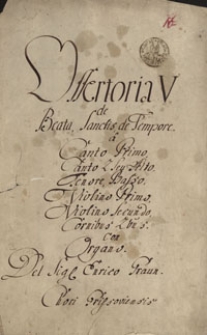 Offertoria V
de
Beata, Sanctis, de Tempore.
à
Canto Primo,
Canto 2. seu Alto,
Tenore, Basso,
Violino Primo,
Violino Secundo,
Cornibus 2bus.
Con
Organo.
Del Sigl. Enrico Graun.
Chori